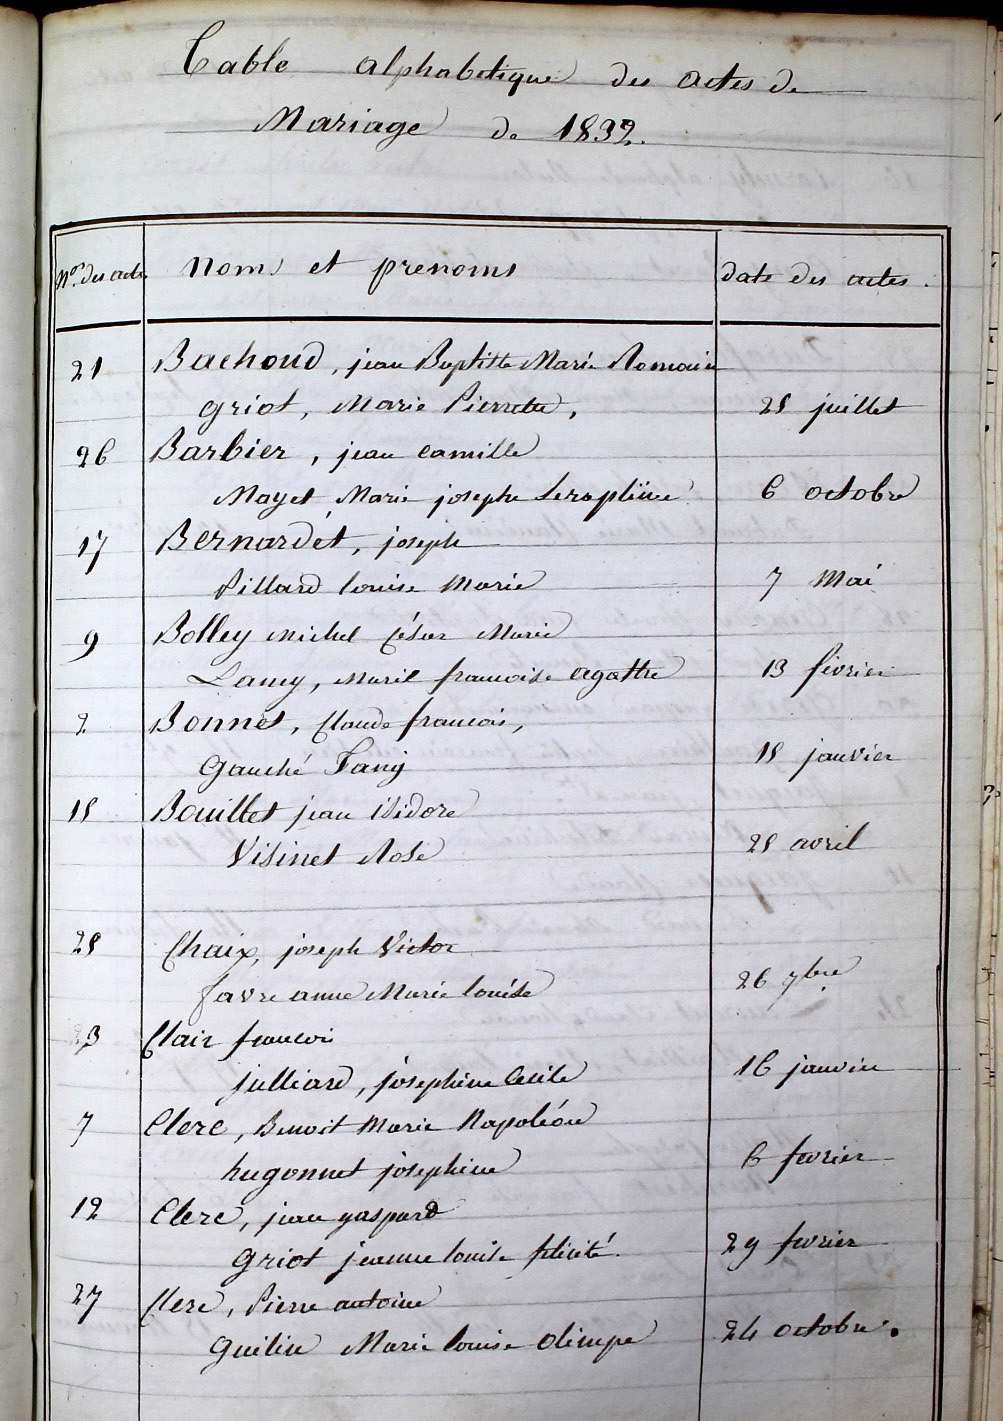 Table alphabetique des actes de
Mariage de 1832.
Nos. des actes
nom et prenoms
date des actes.
21 Bachoud, jean Baptiste Marie Romain
griot, Marie Pierrette, 28 juillet
26 Barbier, jean camille
Mayet Marie josephe Seraphine 6 octobre
17 Bernardet, joseph
Pillard louise Marie 7 Mai
9 Bolley michel César Marie
Lamy, marie francoise agathe 13 février
2 Bonnet, Claude francois,
Gauché Fany 18 janvier
18 Bouillet jean isidore
Visinet Rose 28 avril
28 Chaix, joseph Victor
favre anne Marie louise 26 9bre
Clair francois
julliard, joséphine Cecile 16 janvier
7 Clerc, Benoit Marie Napoléon
hugonnet joséphine 6 fevrier
12 Clerc, jean gaspard
griot jeanne louise félicité 29 fevrier
27 Clerc, Pierre antoine
Marie louise olimpe 24 octobre.